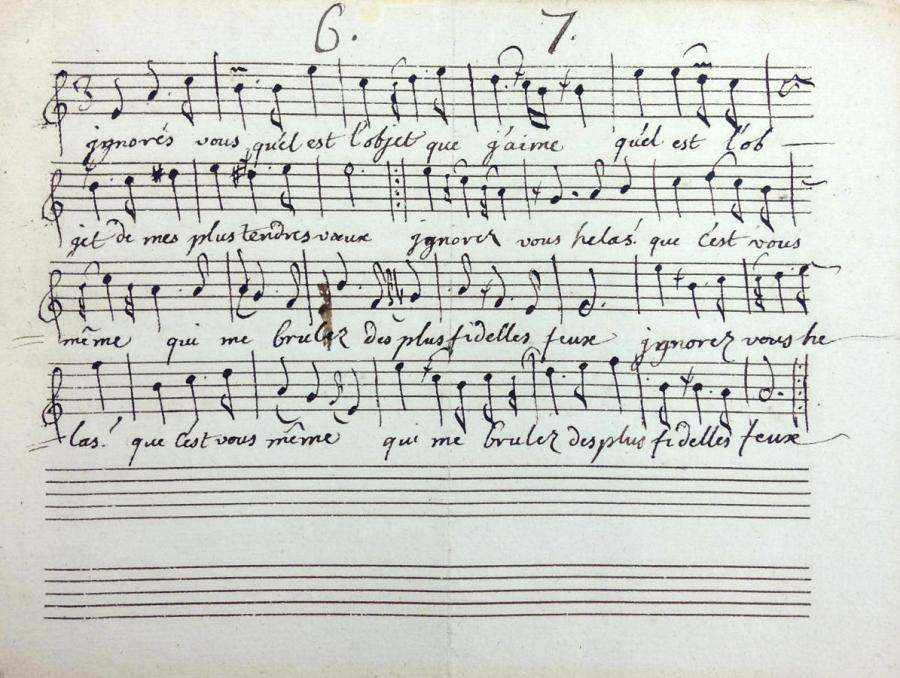 6. 7.
3
jgnorés vous quèl est l'objet que j'aime quèl est l'ob
jet de mes plus tendres vœux jgnorez vous helas! que c'est vous
même qui me brulez des plus fidelles feux jgnorez vous he
las! que c'est vous même qui me brulez des plus fidelles feux